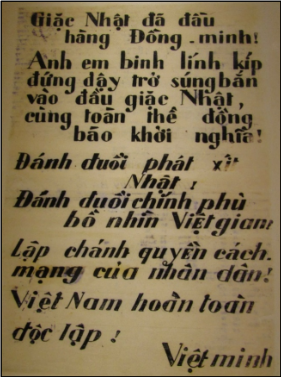 Giặc Nhật đã đầu
hàng Đồng-minh!
Anh em binh lính kíp
đứng dậy trở súng bắn
vào đầu giặc Nhật,
cùng toàn thể đồng
bào khởi nghĩa!
Đánh đuổi phát xít
Nhật!
Đánh đuổi chính phủ
bồ nhìn Việt gian!
Lập chánh quyền cách-
mạng của nhân dân!
Việt Nam hoàn toàn
độc lập!
Việt minh